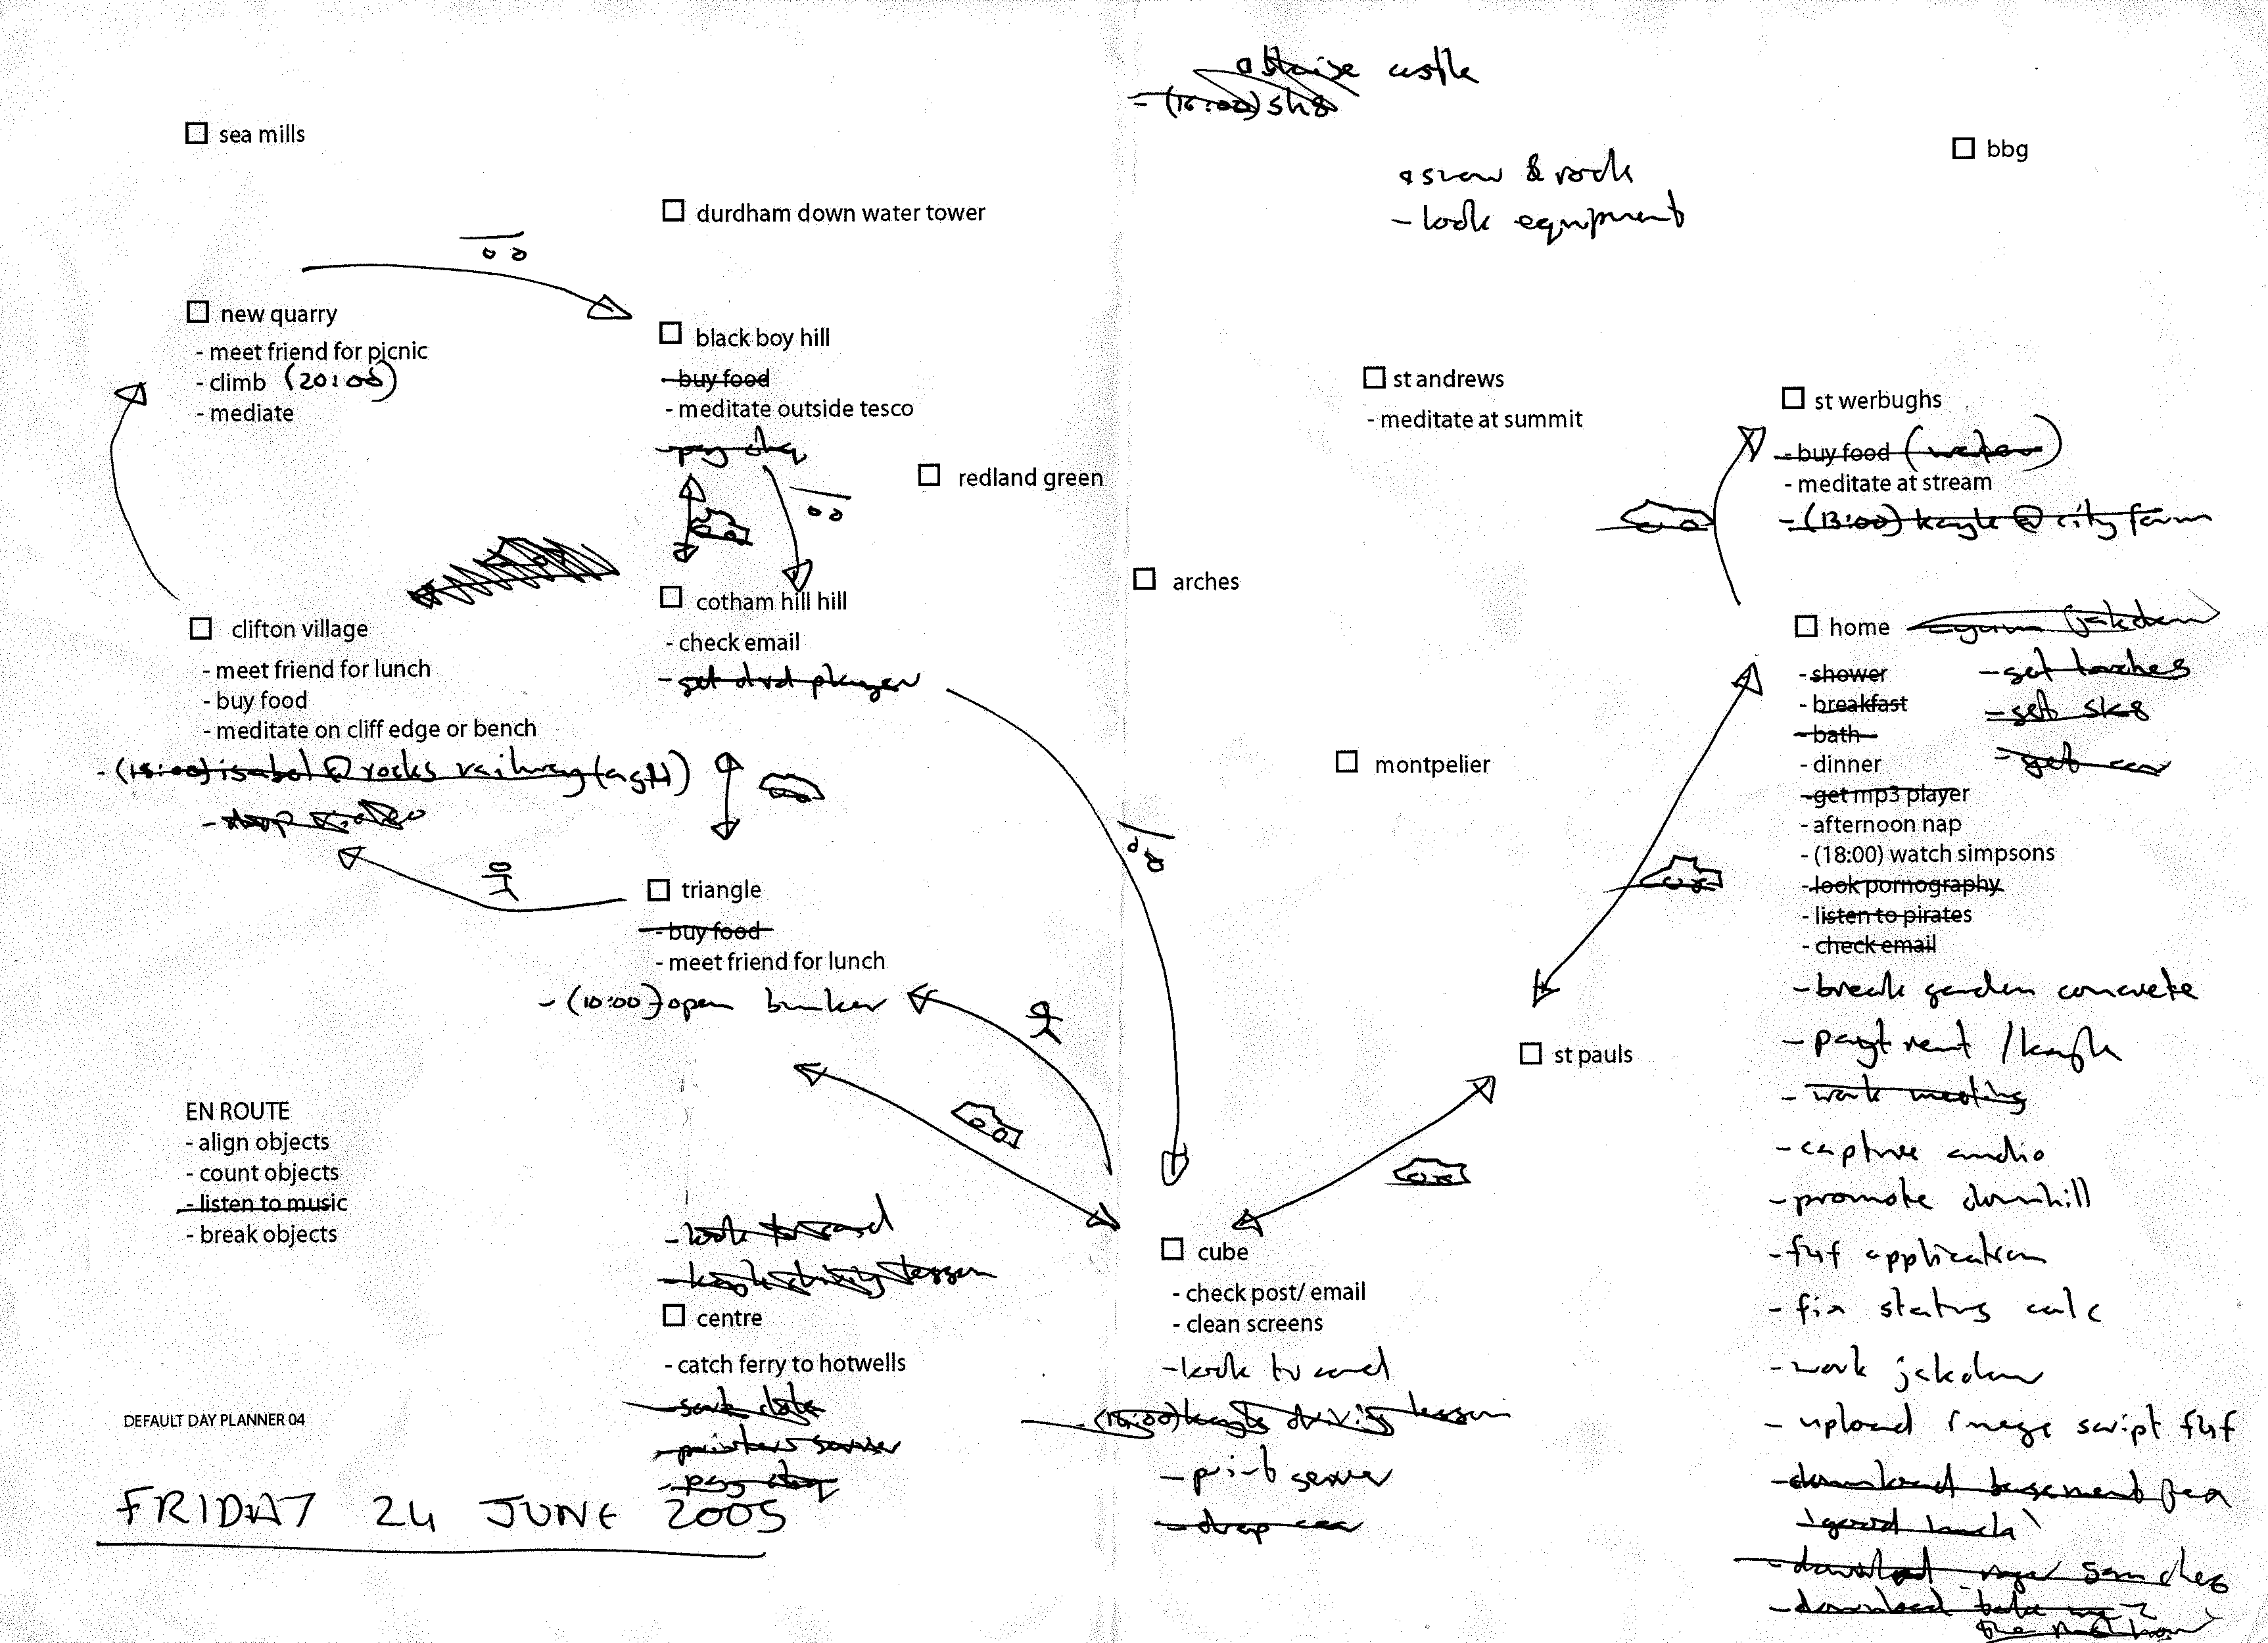 castle
- (16:00) sk8
sea mills
bbg
snow & rock
- look equipment
durdham down water tower
new quarry
- meet friend for picnic
- climb (20:00)
- mediate
black boy hill
- buy food
- meditate outside tesco
- pay chq
st andrews
- meditate at summit
st werbughs
- buy food (water)
- meditate at stream
- (13:00) kayle @ city farm
redland green
arches
clifton village
- meet friend for lunch
- buy food
- meditate on cliff edge or bench
- (15:00) isabel @ rocks railway
cotham hill hill
- check email
- get dvd player
home
- shower
- breakfast
- bath
- dinner
- get mp3 player
- afternoon nap
- (18:00) watch simpsons
- look pornography
- listen to pirates
- check email
- break garden concrete
- rent / kayle
- work meeting
- capture audio
- promote downhill
- f4f application
- fix status calc
- work jakdaw
- upload image script f4f
- download basement
'good luck'
- download
- download
- get torches
- get sk8
- get car
montpelier
triangle
- buy food
- meet friend for lunch
- (10:00) open bunker
st pauls
EN ROUTE
- align objects
- count objects
- listen to music
- break objects
- look
- kayle driving lesson
centre
- catch ferry to hotwells
- printer server
- pay chq
cube
- check post/ email
- clean screens
- look
- (16:00) kayle driving lesson
- print server
- drop car
DEFAULT DAY PLANNER 04
FRIDAY 24 JUNE 2005